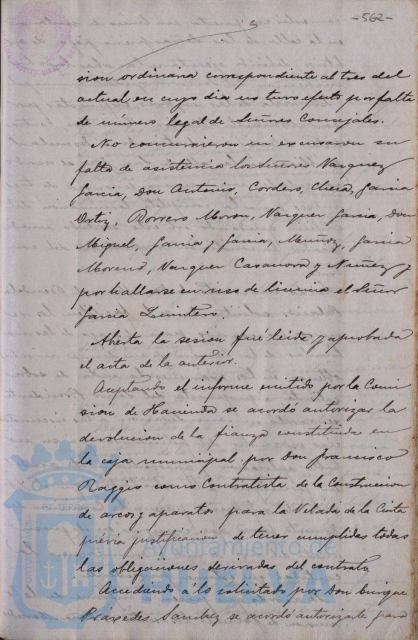 -562-
sion ordinaria correspondiente al tres del
actual en cuyo dia no tuvo efecto por falta
de número legal de Señores Concejales.
No concurrieron ni excusaron su
falta de asistencia los Señores Vazquez
Garcia, Don Antonio, Cordero, Checa, Garcia
Ortiz, Borrero Moron, Vazquez Garcia, Don
Miguel, Garcia y Garcia, Muñoz, Garcia
Moreno, Vazquez Casanova y Nuñez y
por hallarse en uso de licencia el Señor
Garcia Quintero.
Abierta la sesion fué leida y aprobada
el acta de la anterior.
Aceptando el informe emitido por la Comi
sion de Hacienda se acordó autorizar la
devolucion de la fianza constituida en
la caja municipal por Don Francisco
Raggio como Contratista de la Construccion
de arcos y aparatos para la Velada de la Cinta
previa justificacion de tener cumplidas todas
las obligaciones derivadas del contrato.
Accediendo á lo solicitado por Don Enrique
Práxedes Sanchez se acordó autorizarle para
Ayuntamiento de
HUELVA